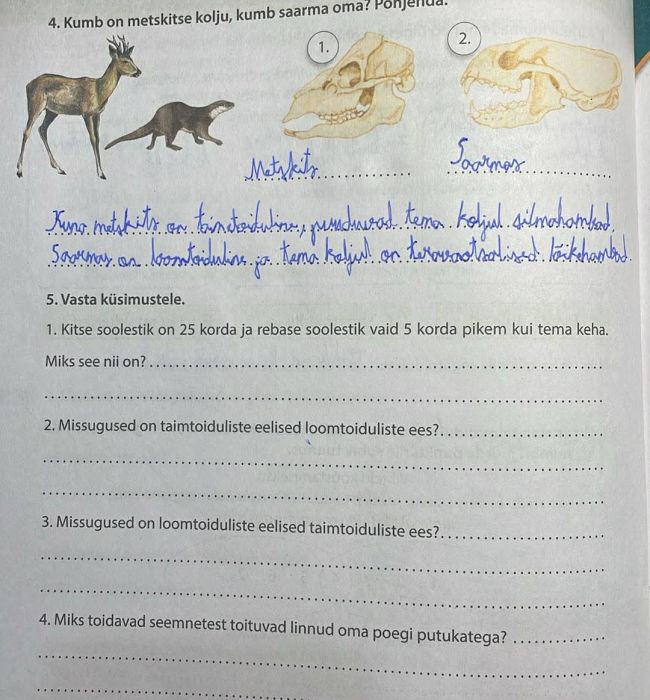 4. Kumb on metskitse kolju, kumb saarma oma? Põhjenda.
1.
2.
Metskits
Saarmas
Kuna metskits on taimetoiduline, puuduvad tema koljul silmahambad.
Saarmas on loomtoiduline ja tema koljul on teravaotsalised lõikehambad.
5. Vasta küsimustele.
1. Kitse soolestik on 25 korda ja rebase soolestik vaid 5 korda pikem kui tema keha.
Miks see nii on?
2. Missugused on taimtoiduliste eelised loomtoiduliste ees?
3. Missugused on loomtoiduliste eelised taimtoiduliste ees?
4. Miks toidavad seemnetest toituvad linnud oma poegi putukatega?